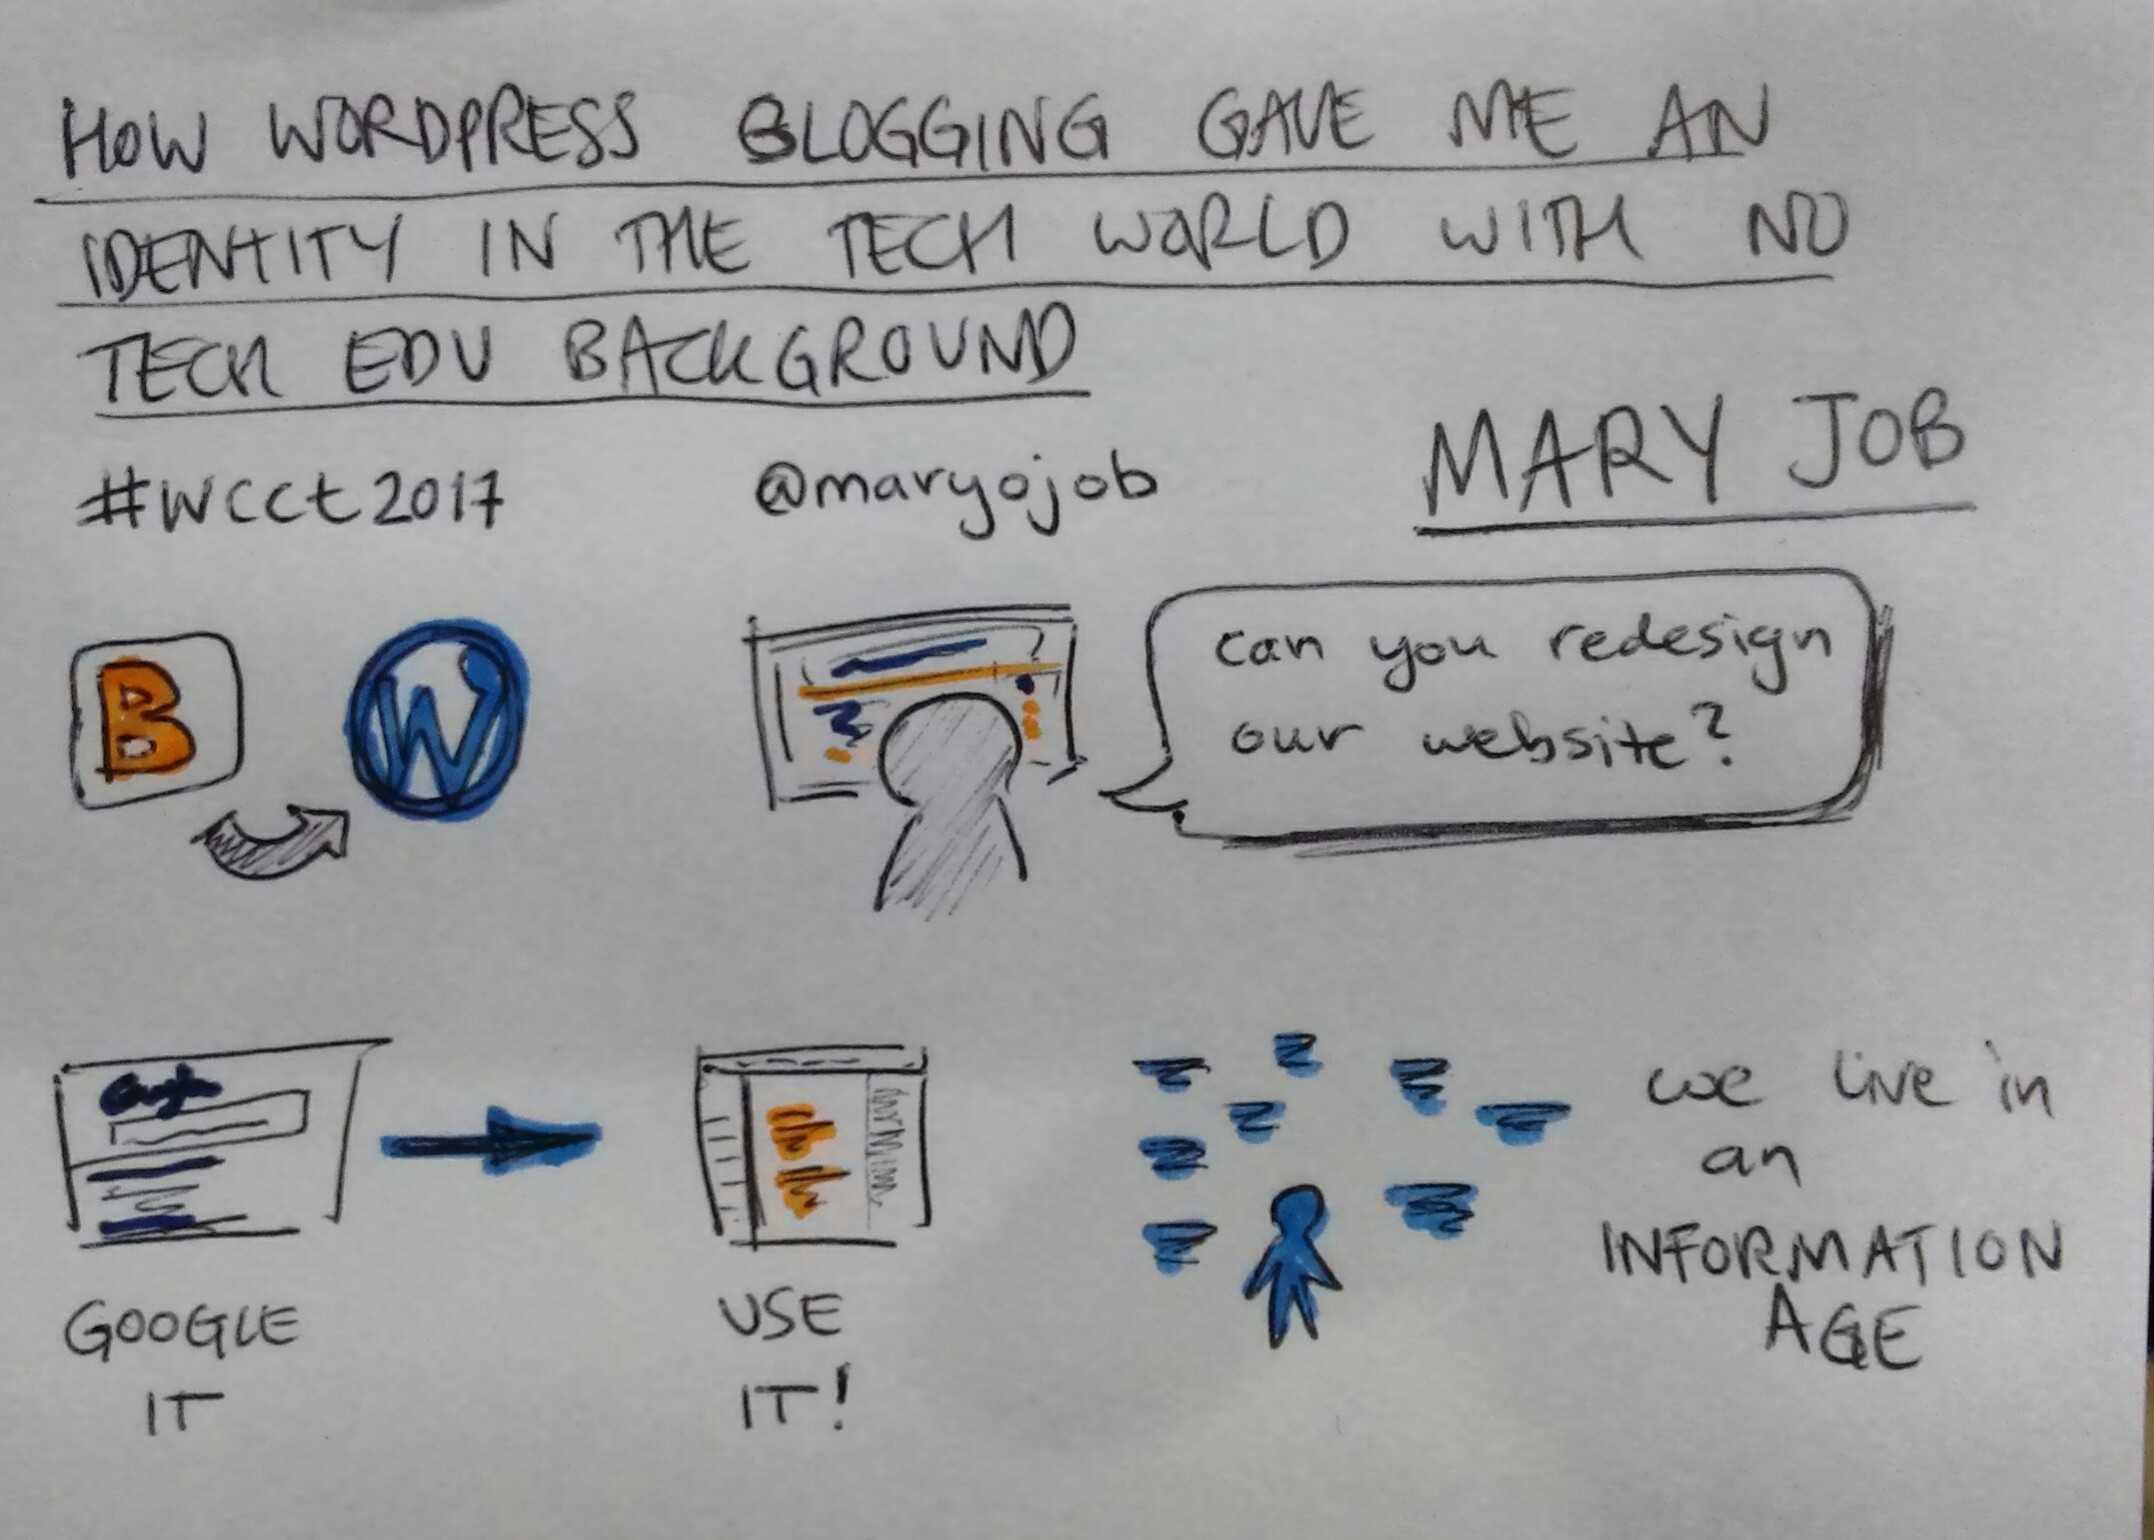 HOW WORDPRESS BLOGGING GAVE ME AN
IDENTITY IN THE TECH WORLD WITH NO
TECH EDU BACKGROUND
MARY JOB
#wcct2017 @maryojob
B
W
can you redesign
our website?
Google
GOOGLE
IT
USE
IT!
we live in
an
INFORMATION
AGE